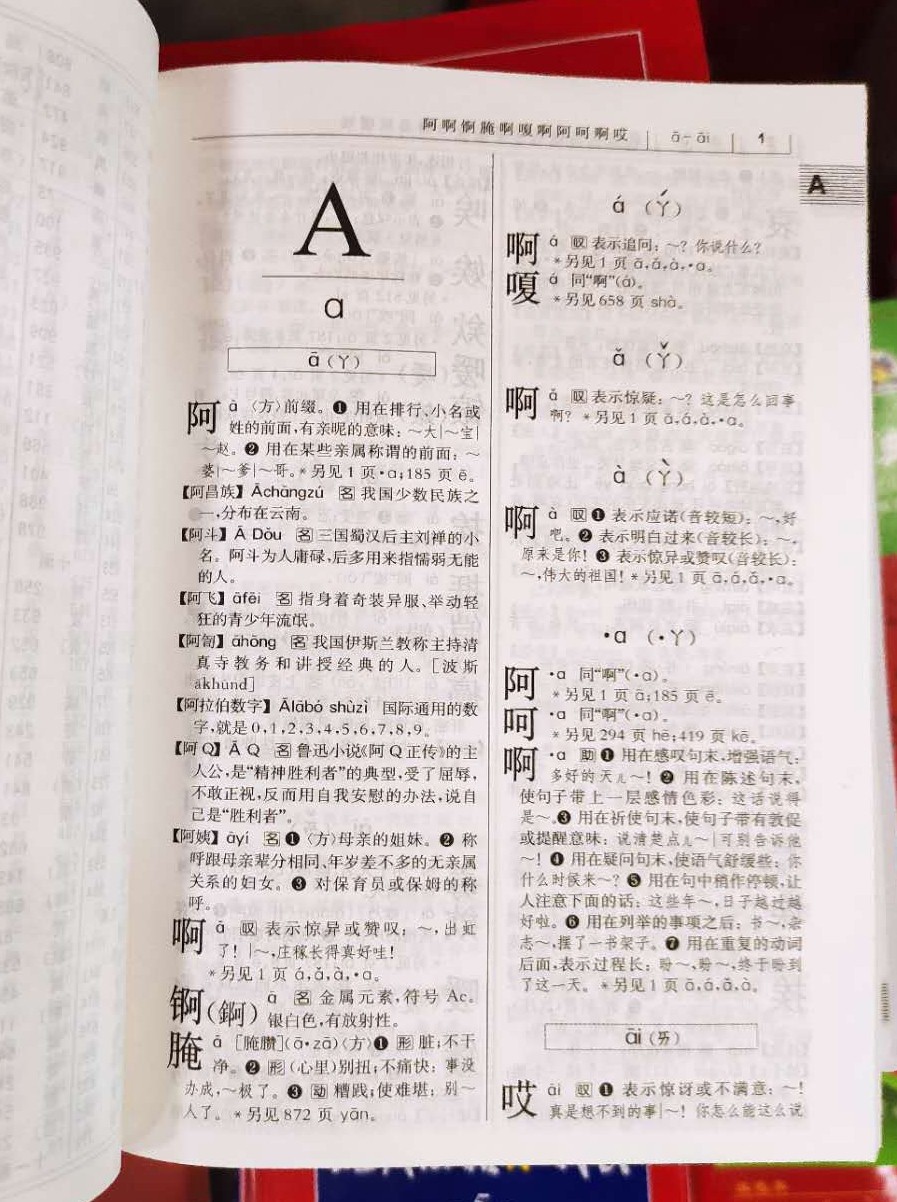 阿啊锕腌啊嗄啊阿呵啊哎 ā-āi 1
A
A
a
ā(ㄚ)
阿 ā 〈方〉前缀。❶ 用在排行、小名或
姓的前面,有亲昵的意味:～大|～宝|
～赵。❷ 用在某些亲属称谓的前面:～
婆|～爹|～哥。*另见1页·a;185页ē。
【阿昌族】Āchāngzú 名 我国少数民族之
一,分布在云南。
【阿斗】Ā Dǒu 名 三国蜀汉后主刘禅的小
名。阿斗为人庸碌,后多用来指懦弱无能
的人。
【阿飞】āfēi 名 指身着奇装异服、举动轻
狂的青少年流氓。
【阿訇】āhōng 名 我国伊斯兰教称主持清
真寺教务和讲授经典的人。[波斯
ākhūnd]
【阿拉伯数字】Ālābó shùzì 国际通用的数
字,就是0,1,2,3,4,5,6,7,8,9。
【阿Q】Ā Q 名 鲁迅小说《阿Q正传》的主
人公,是“精神胜利者”的典型,受了屈辱,
不敢正视,反而用自我安慰的办法,说自
己是“胜利者”。
【阿姨】āyí 名 ❶〈方〉母亲的姐妹。❷ 称
呼跟母亲辈分相同、年岁差不多的无亲属
关系的妇女。❸ 对保育员或保姆的称
呼。
啊 ā 叹 表示惊异或赞叹:～,出虹
了!|～,庄稼长得真好哇!
*另见1页á,ǎ,à,·a。
锕(錒) ā 名 金属元素,符号Ac。
银白色,有放射性。
腌 ā [腌臜](ā·zā)〈方〉❶ 形 脏;不干
净。❷ 形 (心里)别扭;不痛快:事没
办成,～极了。❸ 动 糟践;使难堪:别～
人了。*另见872页yān。
á (ㄚˊ)
啊 á 叹 表示追问:～?你说什么?
*另见1页ā,ǎ,à,·a。
嗄 á 同“啊”(á)。
*另见658页shà。
ǎ (ㄚˇ)
啊 ǎ 叹 表示惊疑:～?这是怎么回事
啊?*另见1页ā,á,à,·a。
à (ㄚˋ)
啊 à 叹 ❶ 表示应诺(音较短):～,好
吧。❷ 表示明白过来(音较长):～,
原来是你!❸ 表示惊异或赞叹(音较长):
～,伟大的祖国!*另见1页ā,á,ǎ,·a。
·a (·ㄚ)
阿 ·a 同“啊”(·a)。
*另见1页ā;185页ē。
呵 ·a 同“啊”(·a)。
*另见294页hē;419页kē。
啊 ·a 助 ❶ 用在感叹句末,增强语气:
多好的天儿～!❷ 用在陈述句末,
使句子带上一层感情色彩:这话说得
是～。❸ 用在祈使句末,使句子带有敦促
或提醒意味:说清楚点儿～|可别告诉他
～!❹ 用在疑问句末,使语气舒缓些:你
什么时候来～?❺ 用在句中稍作停顿,让
人注意下面的话:这些年～,日子越过越
好啦。❻ 用在列举的事项之后:书～,杂
志～,摆了一书架子。❼ 用在重复的动词
后面,表示过程长:盼～,盼～,终于盼到
了这一天。*另见1页ā,á,ǎ,à。
āi (ㄞ)
哎 āi 叹 ❶ 表示惊讶或不满意:～!
真是想不到的事|～!你怎么能这么说